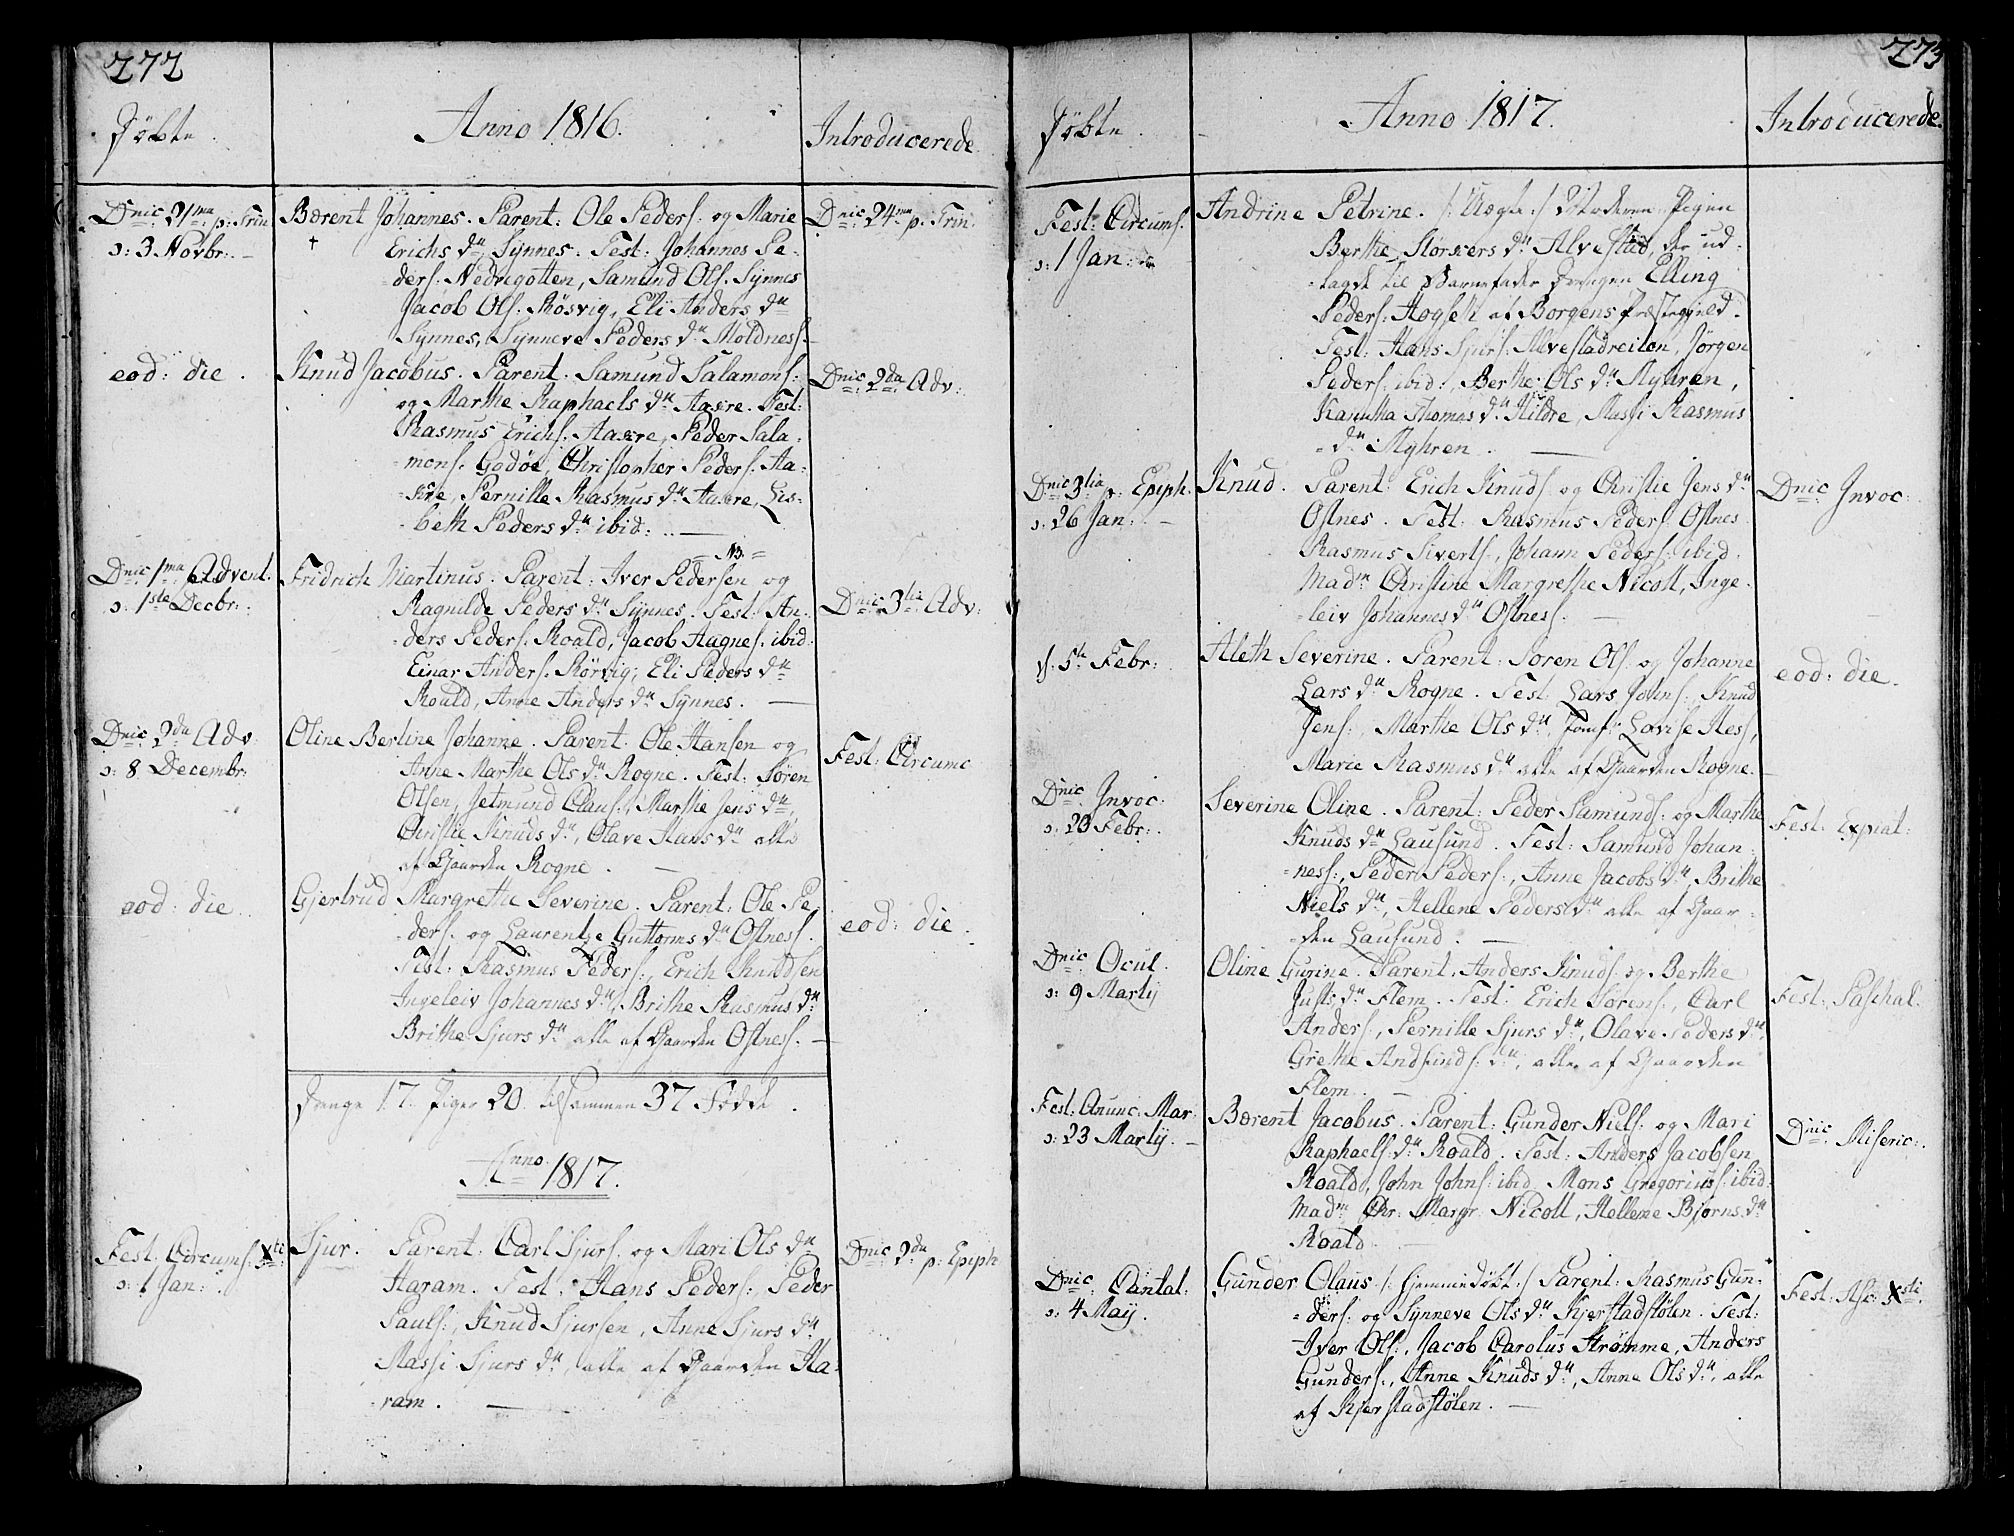 272
Døbte.
Anno 1816.
Introducerede
Dnic 21ma p: Trin
ɔ: 3 Novbr:
Bærent Johannes. Parent: Ole Peders: og Marie
Erichs dtr Synnes. Test: Johannes Pe-
ders: Nedregotten, Samund Ols: Synnes
Jacob Ols: Røsvig, Eli Anders dtr
Synnes, Synneve Peders dtr Moldness.
Dnic 24ma p: Trin.
eod: die.
Knud Jacobus. Parent. Samund Salamons:
og Marthe Raphaels dtr Aakre. Test:
Rasmus Erichs. Aakre, Peder Sala-
mons. Godøe, Christopher Peders. Aa-
kre, Pernille Rasmus dtr Aakre, Lis-
beth Peders dtr ibid:
Dnic 2da Adv:
NB
Dnic 1ma Advent.
ɔ: 1ste Decbr:
Fridrich Martinus. Parent: Iver Pedersen og
Ragnilde Peders dtr Synnes. Test: An-
ders Peders. Roald, Jacob Aagnes. ibid:
Einar Anders. Rørvig, Eli Peders dtr
Roald, Anne Anders dtr Synnes.
Dnic 3tia Adv:
Dnic 2da Adv
ɔ: 8 Decembr:
Oline Bertine Johanne. Parent. Ole Hansen og
Anne Marthe Ols dtr Rogne. Test: Søren
Olsen, Jetmund Claus:, Marthe Jens dtr,
Christie Knuds dtr, Olave Hans dtr alle
af Gaarden Rogne.
Fest: Circumc
eod: die
Gjertrud Margrethe Severine. Parent: Ole Pe-
ders. og Laurentze Guttorms dtr Ostness.
Test: Rasmus Peders:, Erich Knudsen
Ingeleiv Johannes dtr, Brithe Rasmus dtr
Brithe Sjurs dtr alle af Gaarden Ostness.
eod: die.
Drenge 17. Piger 20. tilsammen 37 Fødde.
Anno 1817.
Fest: Circums: Xti
ɔ: 1 Jan:
Sjur. Parent: Carl Sjurs. og Mari Ols dtr
Haram. Test: Hans Peders: Peder
Pauls:, Knud Sjursen, Anne Sjurs dtr
Massi Sjurs dtr, alle af Gaarden Ha-
ram.
Dnic 2da p: Epiph
273
Døbte.
Anno 1817.
Introducerede.
Fest: Circums.
ɔ: 1 Jan:
Andrine Petrine. /: Uægte :/ Moderen Pigen
Berthe Størkers dtr Alvestad, der ud-
lagde til Barnefader Drengen Elling
Peders: Hogseth af Borgens Præstegield.
Test: Hans Sjurs: Alvestadreiten, Jørgen
Peders: ibid:, Berthe Ols dtr Myhren,
Karntha Thomas dtr Hildre, Massi Rasmus
dtr: Myhren.
Dnic 3tia p: Epiph.
ɔ: 26 Jan:
Knud. Parent. Erich Knuds. og Christie Jens dtr
Ostnes. Test: Rasmus Peders: Ostnes
Rasmus Siverts:, Johann Peders: ibid.
Madm Christine Margrethe Nicoll, Inge-
leiv Johannes dtr Ostness.
Dnic Invoc:
d. 5te Febr:
Aleth Severine. Parent: Søren Ols: og Johanne
Lars dtr Rogne. Test: Lars Johns:, Knud
Jens:, Marthe Ols dtr, Jomf: Lovise Hess,
Marie Rasmus dtr alle af Gaarden Rogne.
eod: die.
Dnic Invoc:
ɔ: 23 Febr:
Severine Oline. Parent: Peder Samunds: og Marthe
Knuds dtr Lausund. Test: Samund Johan-
ness:, Peder Peders:, Anne Jacobs dtr, Brithe
Niels dtr, Hellene Peders dtr alle af Gaar-
den Lausund.
Fest: Expiat:
Dnic Ocul.
ɔ: 9 Martij
Oline Gurine. Parent: Anders Knuds: og Berthe
Justs dtr Flem. Test: Erich Sørens:, Carl
Anders:, Pernille Sjurs dtr, Olave Peders dtr,
Grethe Andfinds: dtr, alle af Gaarden
Flem.
Fest: Paschal.
Fest: Anunc: Mar:
ɔ: 23 Martij.
Bærent Jacobus. Parent: Gunder Niels: og Mari
Raphaels: dtr Roald. Test: Anders Jacobsen
Roald, John Johns: ibid, Mons Gregoriuss: ibid.
Madm Chr: Margr: Nicoll, Hellene Bjørns dtr
Roald
Dnic Miseric:
Dnic Cantat:
ɔ: 4 Maij.
Gunder Olaus /: hjemmedøbt :/ Parent: Rasmus Gun-
ders: og Synneve Ols dtr Kjerstadstølen. Test:
Iver Ols:, Jacob Carolus Strømme, Anders
Gunders:, Anne Knuds dtr, Anne Ols dtr, alle
af Kjerstadstølen.
Fest: Asc: Xsti.